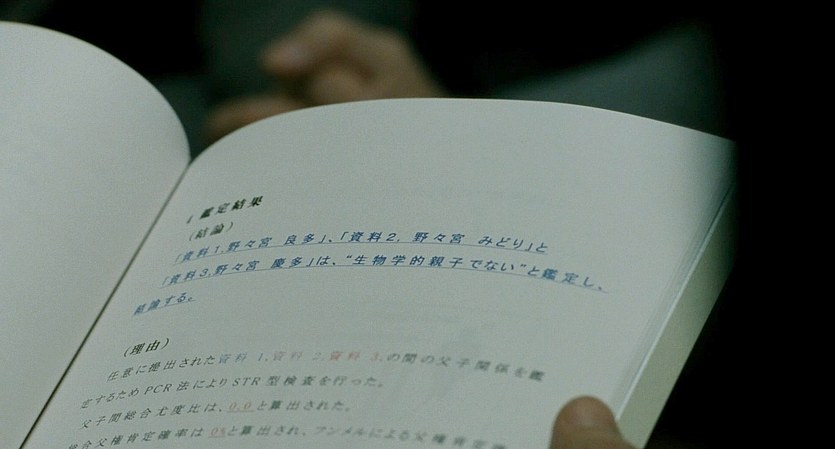 4 鑑定結果
（結論）
「資料1,野々宮 良多」、「資料2, 野々宮 みどり」と
「資料3,野々宮 慶多」は、“生物学的親子でない”と鑑定し、
結論する。
（理由）
任意に提出された資料 1,資料 2,資料 3,の間の父子関係を鑑
定するため PCR 法により STR 型検査を行った。
父子間総合尤度比は、0.0 と算出された。
総合父権肯定確率は 0%と算出され、フンメルによる父権肯定